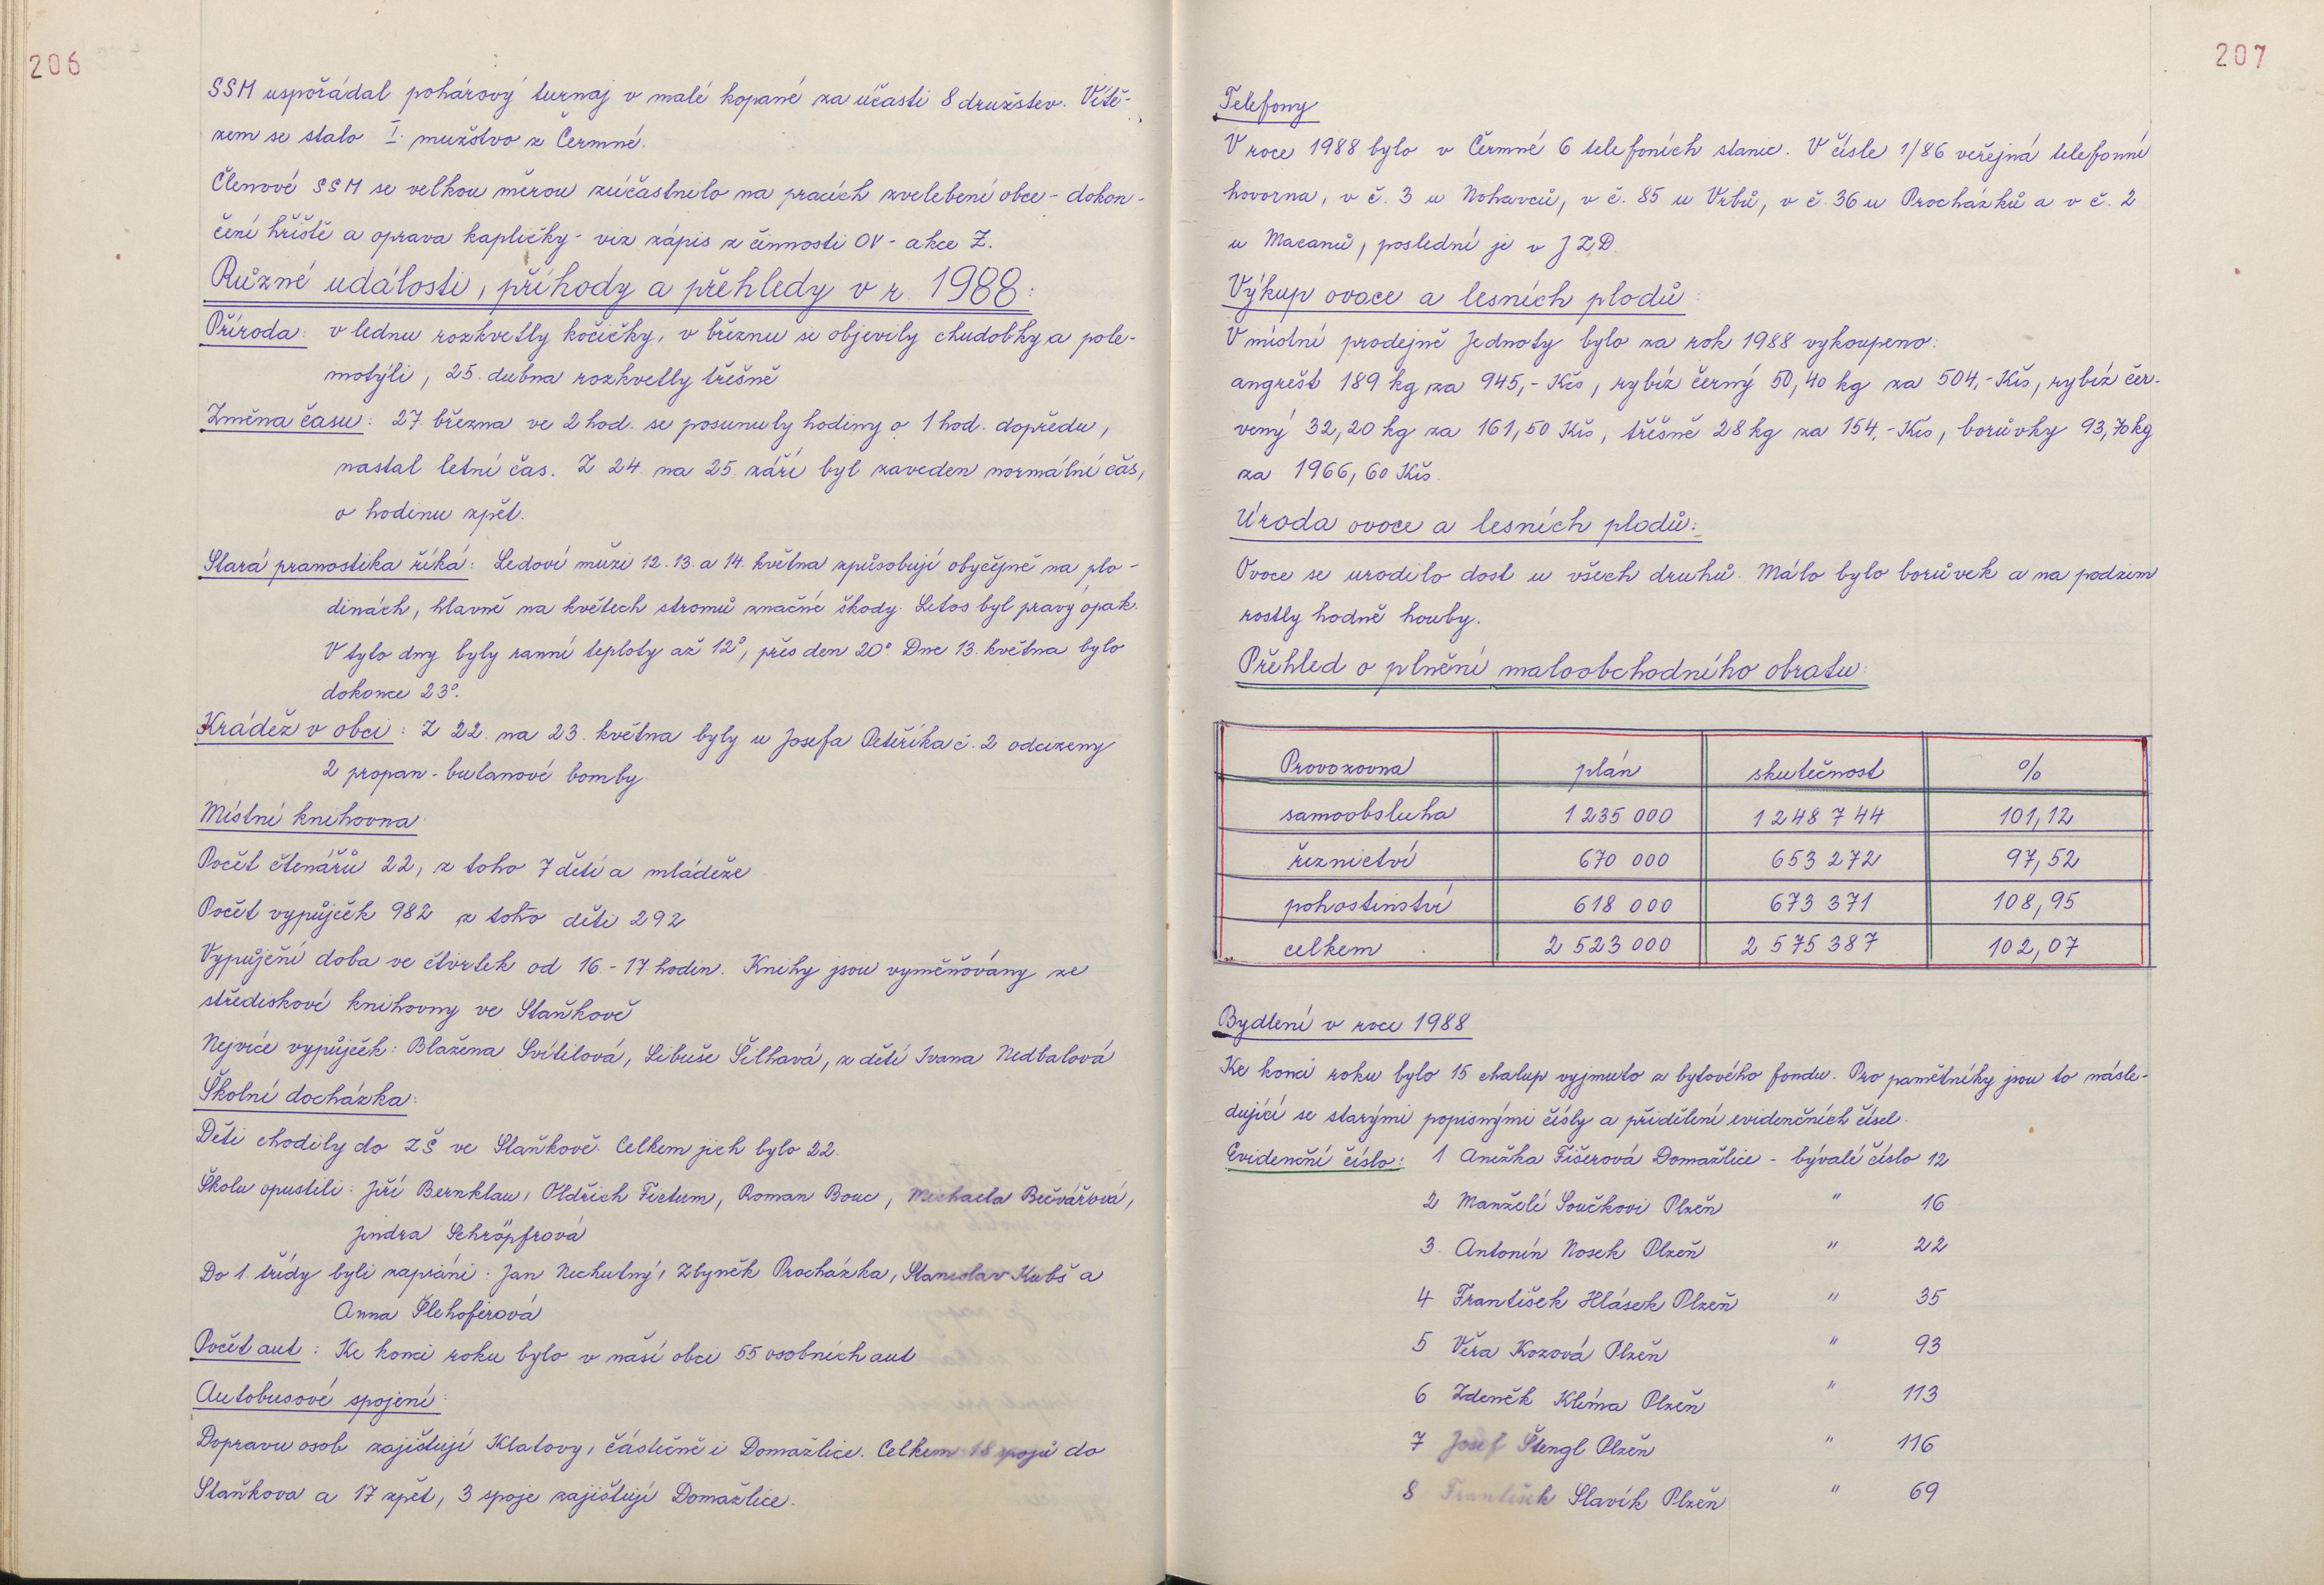 206
SSM uspořádal pohárový turnaj v malé kopané za účasti 8 družstev. Vítě-
zem se stalo I. mužstvo z Čermné.
Členové SSM se velkou měrou zúčastnilo na pracích zvelebení obce - dokon-
čení hřiště a oprava kapličky - viz zápis z činnosti OV - akce Z.
Různé události, příhody a přehledy v r. 1988:
Příroda: v lednu rozkvetly kočičky, v březnu se objevily chudobky a pole-
motýli, 25. dubna rozkvetly třešně
Změna času: 27. března ve 2 hod. se posunuly hodiny o 1 hod. dopředu,
nastal letní čas. Z 24. na 25. září byl zaveden normální čas,
o hodinu zpět.
Stará pranostika říká: Ledoví muži 12. 13. a 14. května způsobují obyčejně na plo-
dinách, hlavně na květech stromů značné škody. Letos byl pravý opak.
V tyto dny byly ranní teploty až 12°, přes den 20°. Dne 13. května bylo
dokonce 23°.
Krádež v obci: Z 22. na 23. května byly u Josefa Petěříka č. 2 odcizeny
2 propan-butanové bomby.
Místní knihovna
Počet čtenářů 22, z toho 7 dětí a mládeže
Počet vypůjček 982 z toho děti 292
Vypůjční doba ve čtvrtek od 16 - 17 hodin. Knihy jsou vyměňovány ze
střediskové knihovny ve Staňkově
Nejvíce vypůjček: Blažena Svítilová, Libuše Šilhavá, z dětí Ivana Nedbalová
Školní docházka:
Děti chodily do ZŠ ve Staňkově. Celkem jich bylo 22.
Školu opustili: Jiří Bernklau, Oldřich Fictum, Roman Bouc, Michaela Bečvářová,
Jindra Schröpfrová
Do 1. třídy byli zapsáni: Jan Nechutný, Zbyněk Procházka, Stanislav Kubš a
Anna Šlehoferová
Počet aut: Ke konci roku bylo v naší obci 55 osobních aut
Autobusové spojení:
Dopravu osob zajišťují Klatovy, částečně i Domažlice. Celkem 18 spojů do
Staňkova a 17 zpět, 3 spoje zajišťují Domažlice.
207
Telefony
V roce 1988 bylo v Čermné 6 telefoních stanic. V čísle 1/86 veřejná telefonní
hovorna, v č. 3 u Nohavců, v č. 85 u Vrbů, v č. 36 u Procházků a v č. 2
u Macanů, poslední je v JZD.
Výkup ovoce a lesních plodů:
V místní prodejně Jednoty bylo za rok 1988 vykoupeno:
angrešt 189 kg za 945,- Kčs, rybíz černý 50,40 kg za 504,- Kčs, rybíz čer-
vený 32,20 kg za 161,50 Kčs, třešně 28 kg za 154,- Kčs, borůvky 93,70 kg
za 1966,60 Kčs.
Úroda ovoce a lesních plodů:
Ovoce se urodilo dost u všech druhů. Málo bylo borůvek a na podzim
rostly hodně houby.
Přehled o plnění maloobchodního obratu:
Provozovna plán skutečnost %
samoobsluha 1 235 000 1 248 744 101,12
řeznictví 670 000 653 272 97,52
pohostinství 618 000 673 371 108,95
celkem 2 523 000 2 575 387 102,07
Bydlení v roce 1988
Ke konci roku bylo 15 chalup vyjmuto z bytového fondu. Pro pamětníky jsou to násle-
dující se starými popisnými čísly a přidělení evidenčních čísel.
Evidenční číslo: 1 Anežka Fišerová Domažlice - bývalé číslo 12
2 Manželé Součkovi Plzeň " 16
3. Antonín Nosek Plzeň " 22
4 František Hlásek Plzeň " 35
5 Věra Kozová Plzeň " 93
6 Zdeněk Klíma Plzeň " 113
7 Josef Štengl Plzeň " 116
8 František Slavík Plzeň " 69